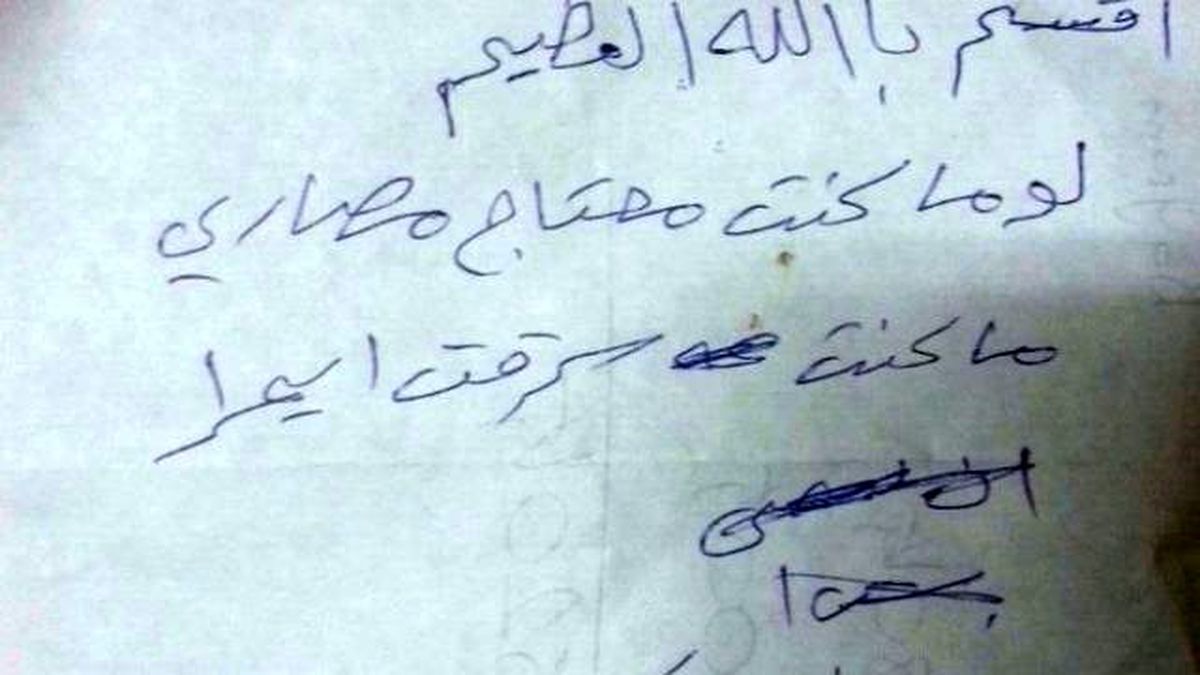 اقسم باالله العضيم
لو ما كنت محتاج مصاري
ما كنت سرقت